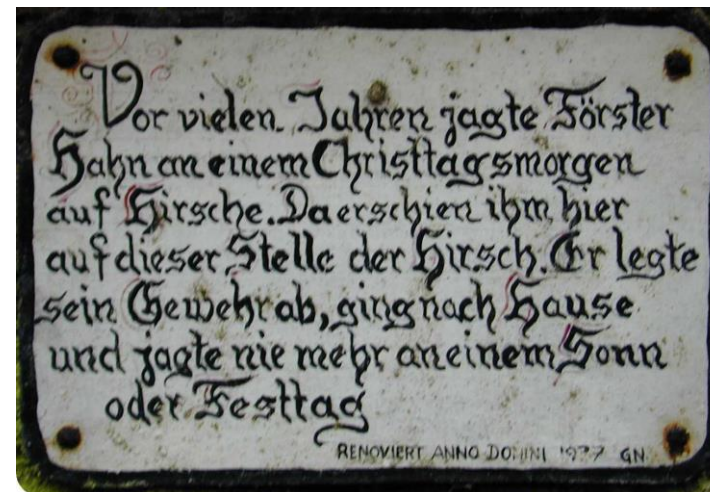 Vor vielen Jahren jagte Förster
Hahn an einem Christtagsmorgen
auf Hirsche. Da erschien ihm hier
auf dieser Stelle der Hirsch. Er legte
sein Gewehr ab, ging nach Hause
und jagte nie mehr an einem Sonn
oder Festtag
RENOVIERT ANNO DOMINI GN.